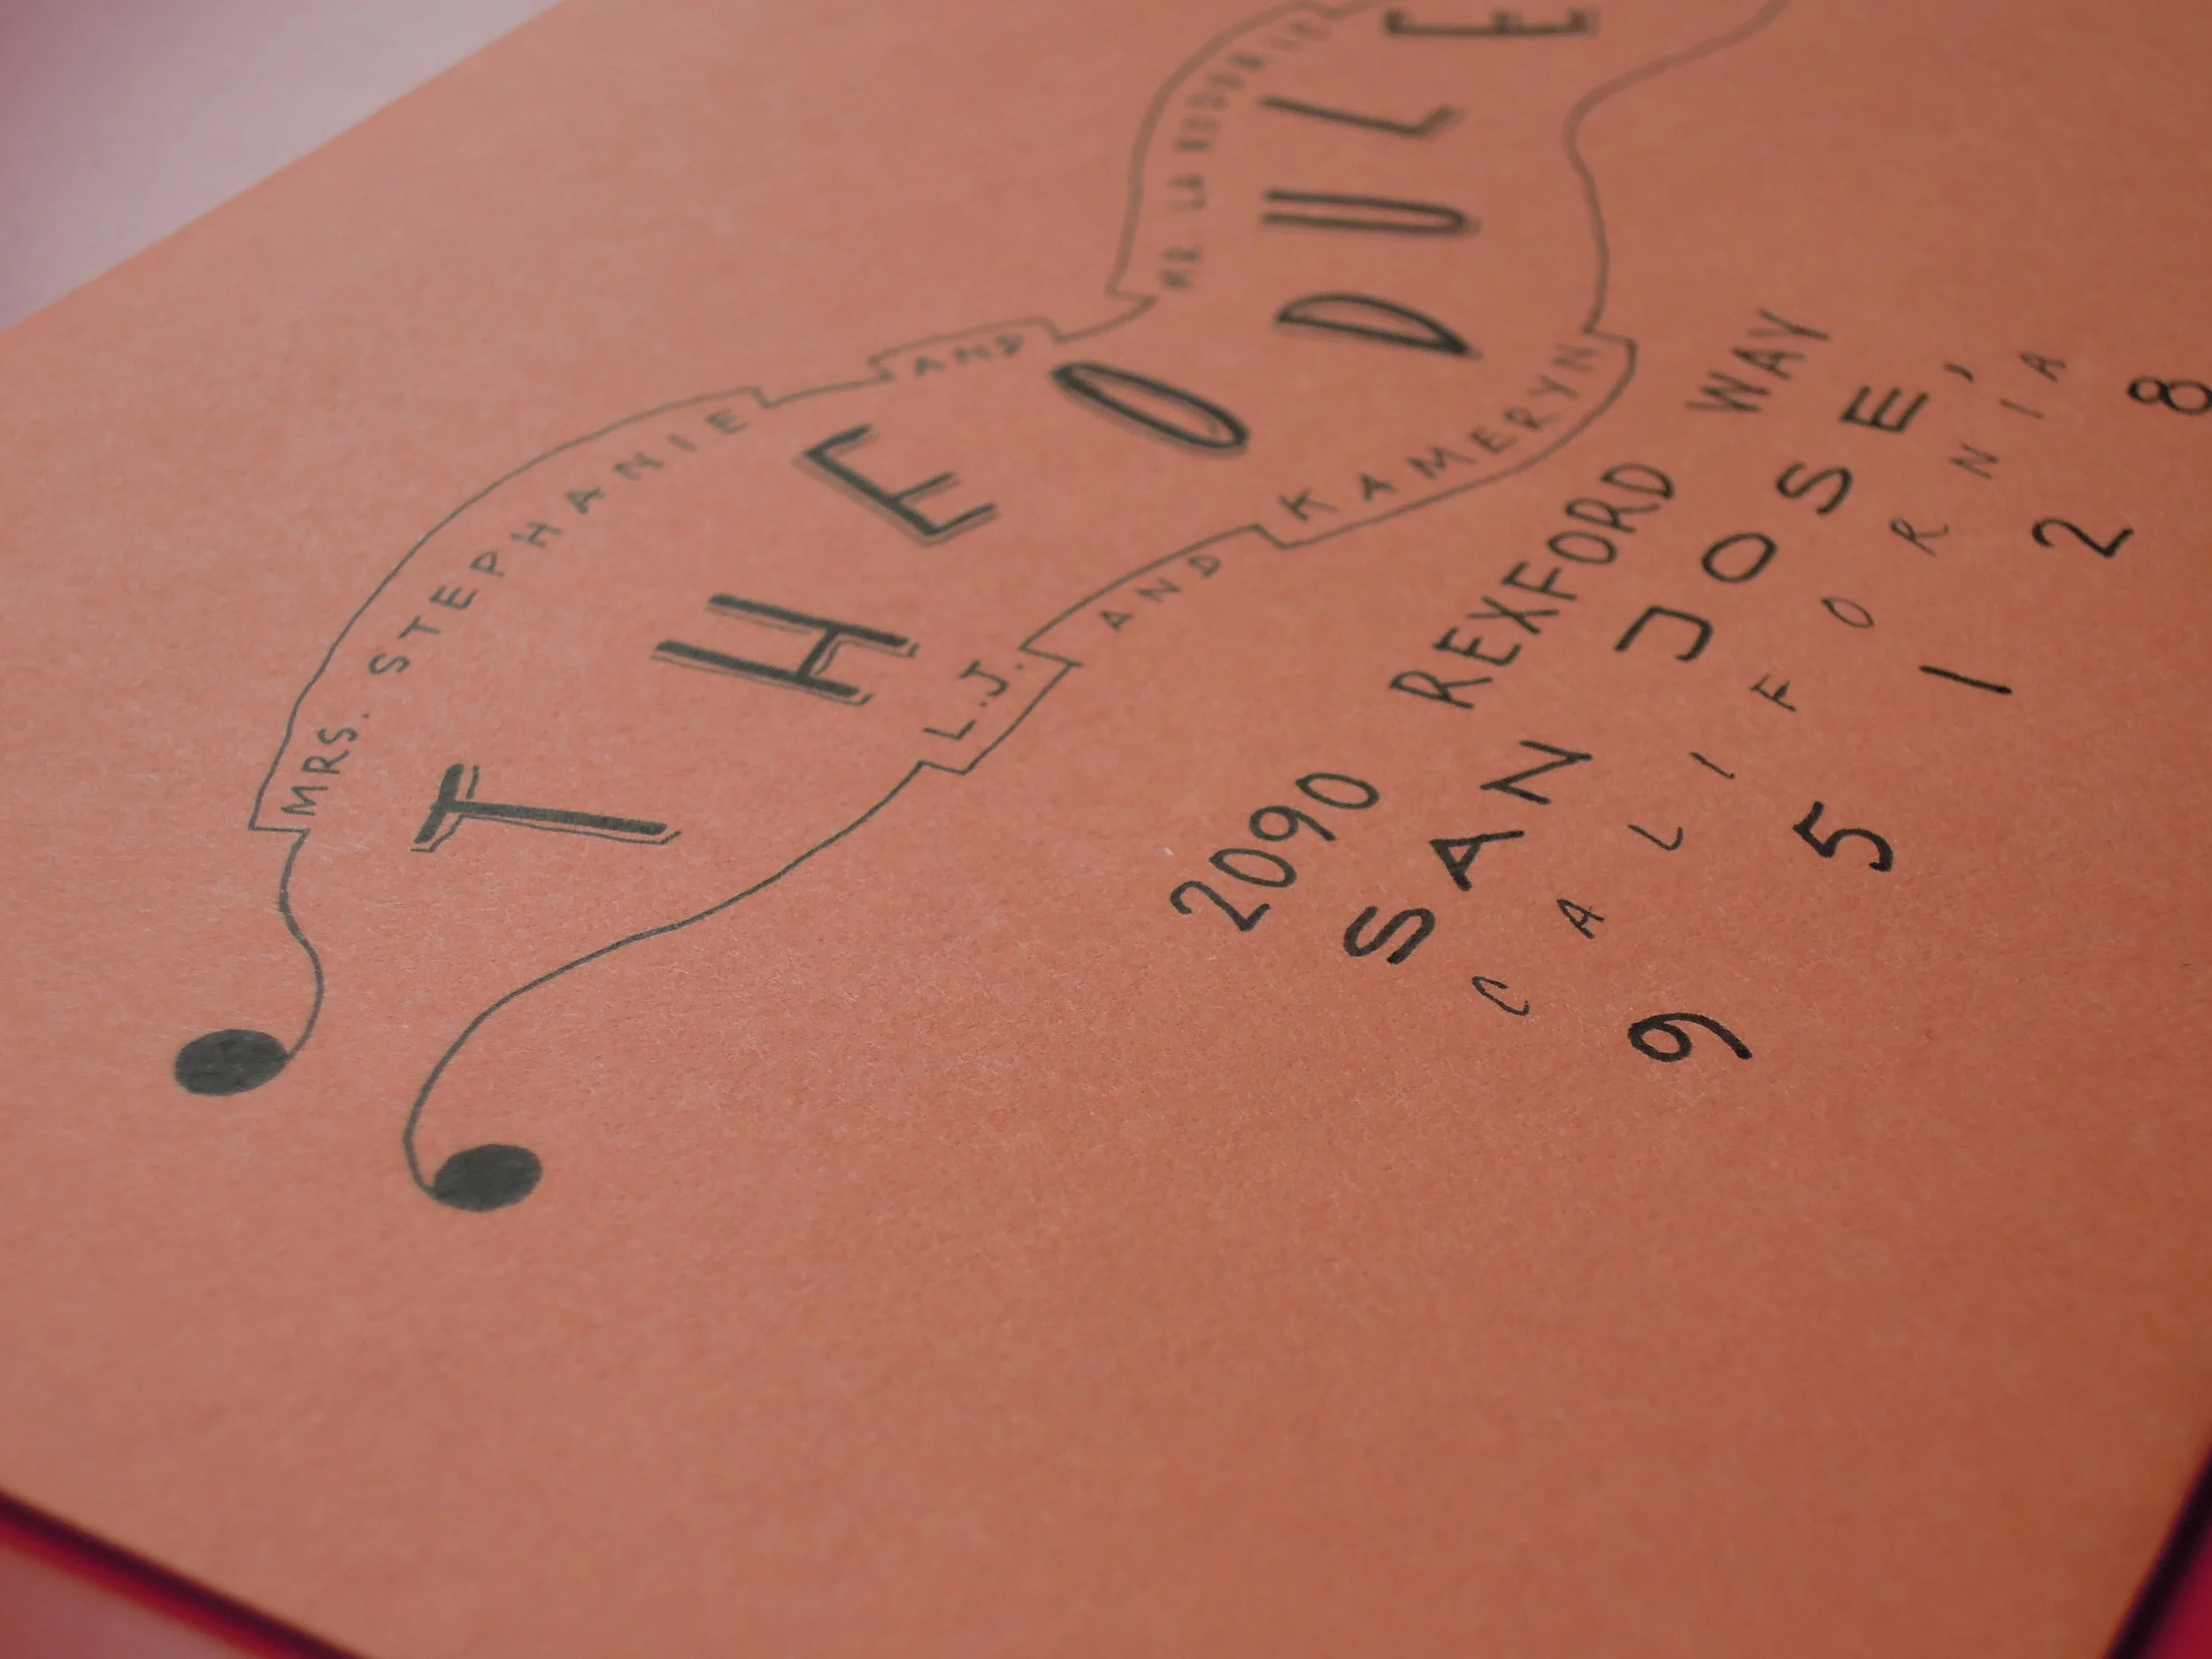 MRS. STEPHANIE AND MR. LA
THEODULE
L.J. AND KAMERYN
2090 REXFORD WAY
SAN JOSE,
CALIFORNIA
95128